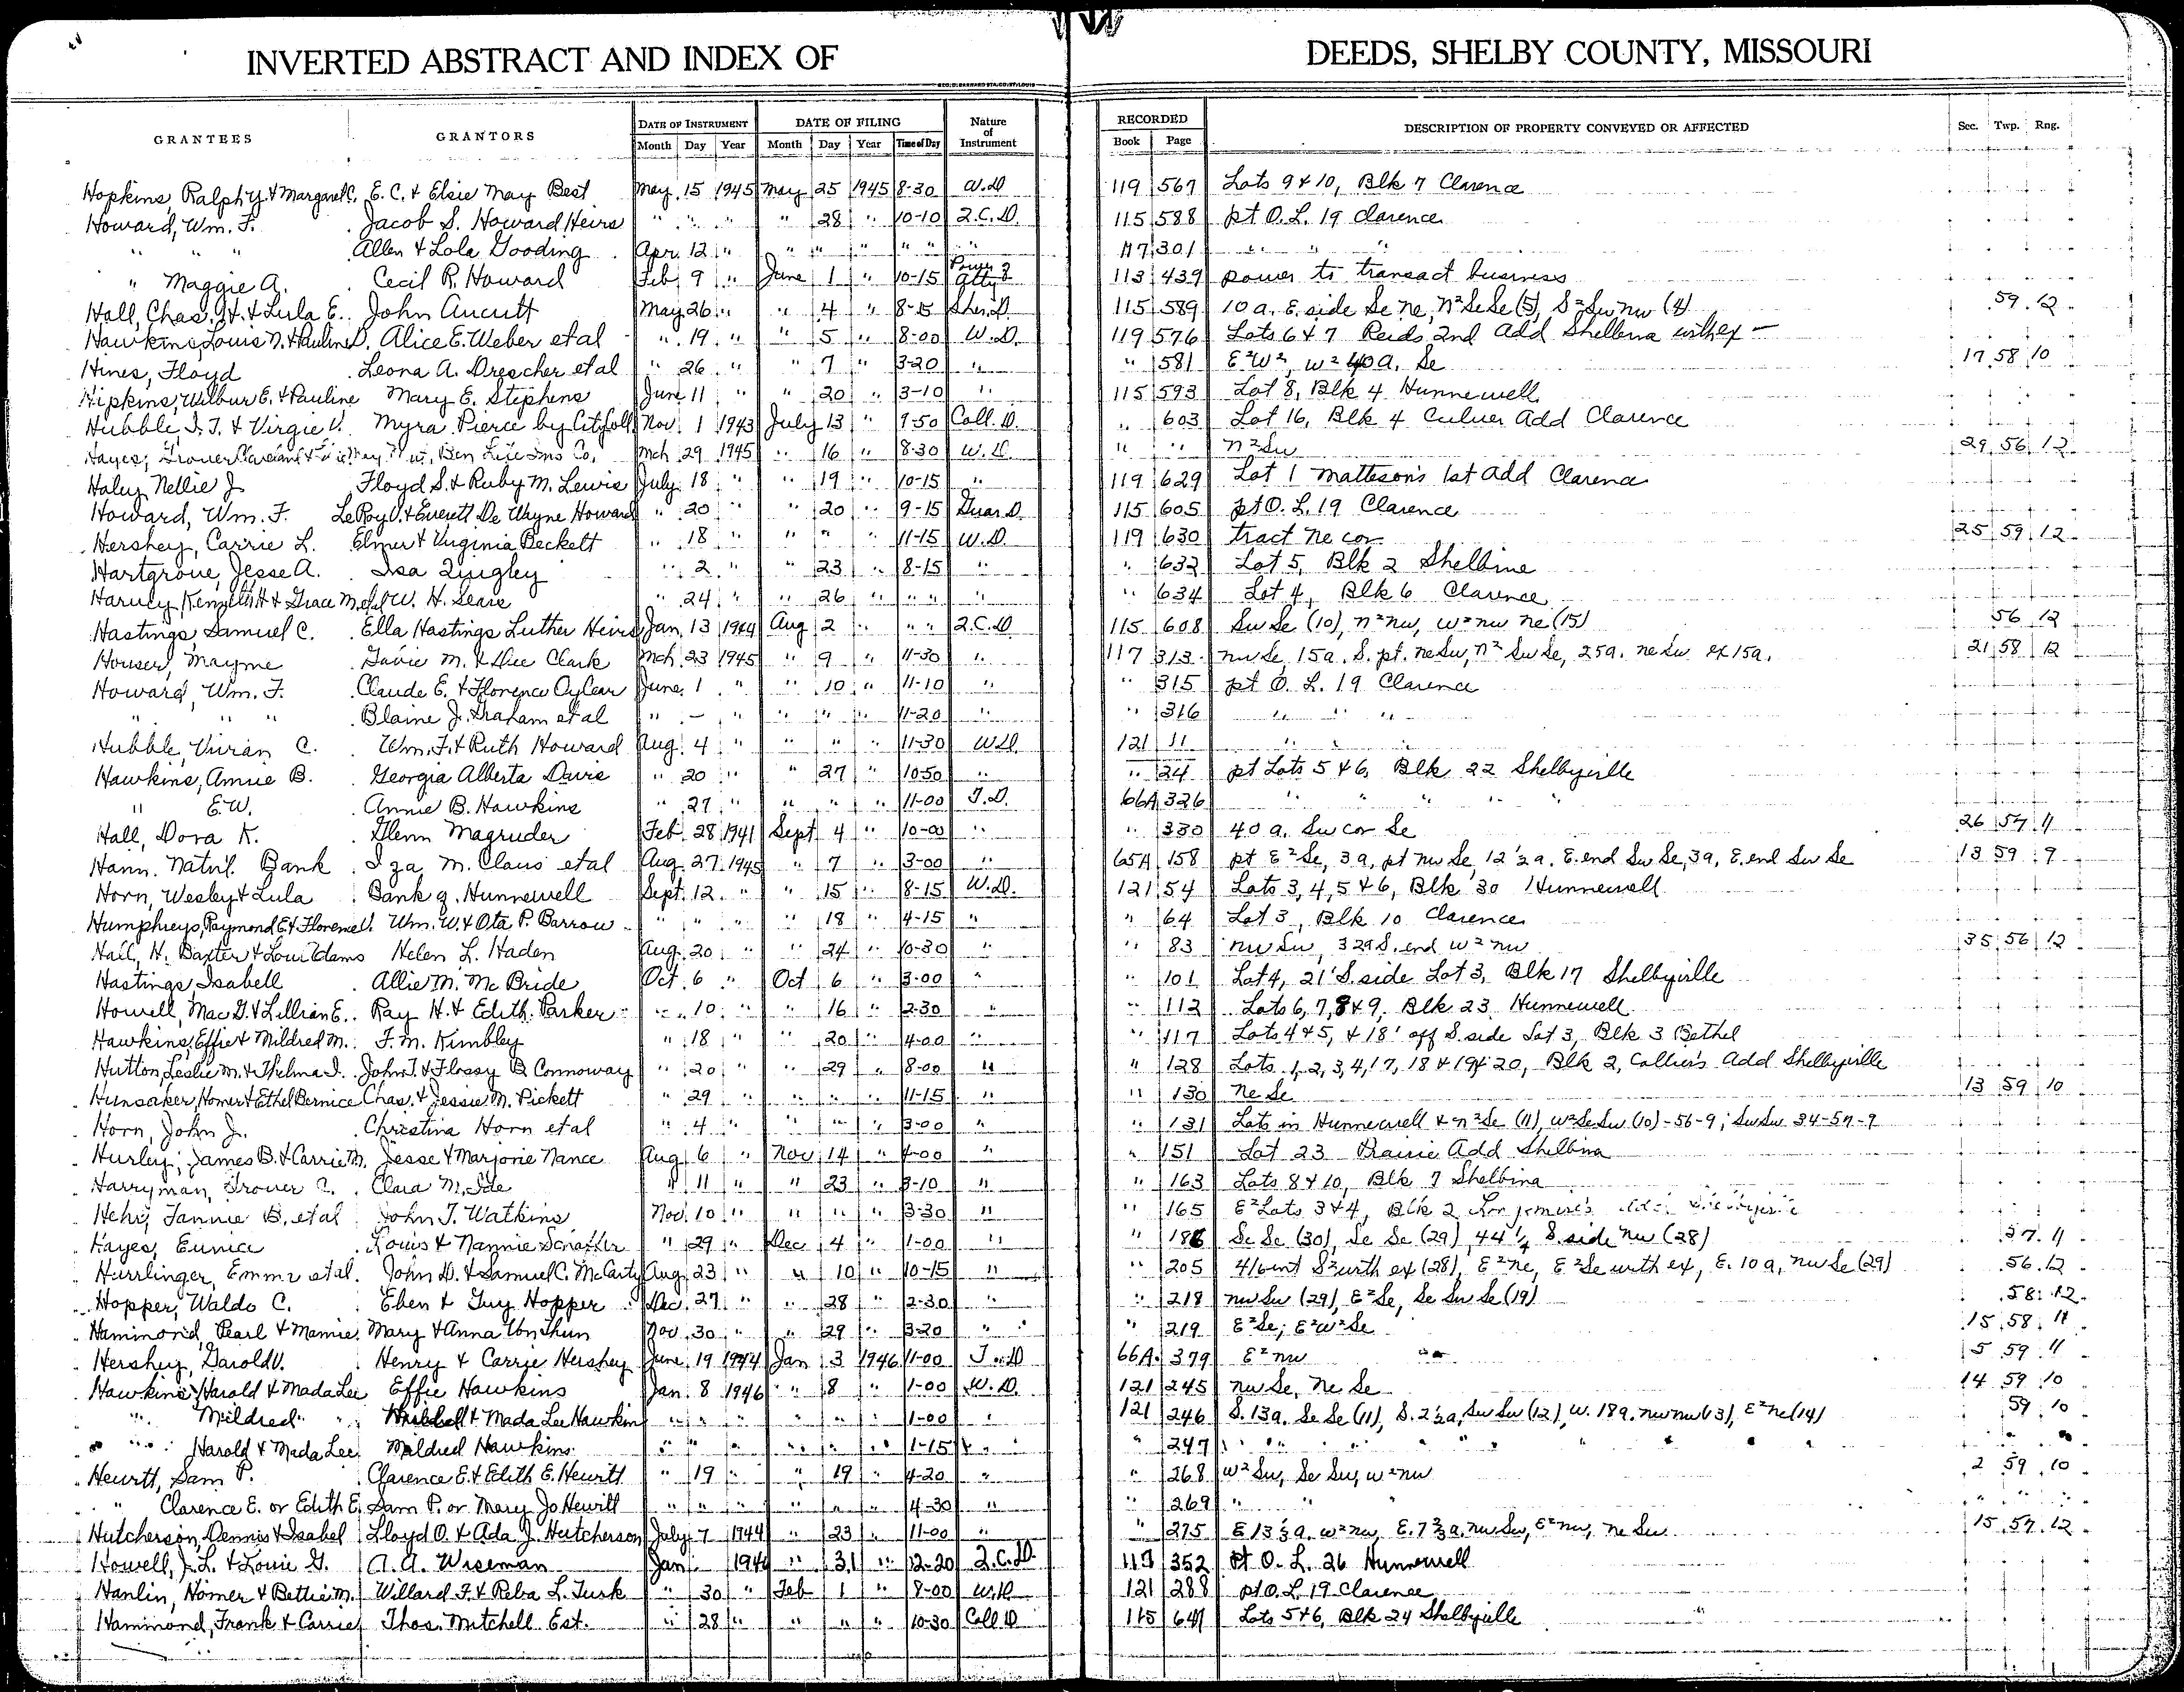 INVERTED ABSTRACT AND INDEX OF DEEDS, SHELBY COUNTY, MISSOURI
GRANTEES GRANTORS DATE OF INSTRUMENT DATE OF FILING Nature of Instrument RECORDED DESCRIPTION OF PROPERTY CONVEYED OR AFFECTED Sec. Twp. Rng.
Month Day Year Month Day Year Time of Day Book Page
Hopkins, Ralph Y. & Margaret C. E. C. & Elsie May Best May 15 1945 May 25 1945 8-30 W.D 119 567 Lots 9 & 10, Blk 7 Clarence
Howard, Wm. F. Jacob S. Howard Heirs " " " " 28 " 10-10 Q.C.D. 115 588 pt O.L. 19 Clarence
" " " Allen & Lola Gooding Apr. 12 " " " " " " " 117 301 " " "
" Maggie A. Cecil R. Howard Feb 9 " June 1 " 10-15 Power Atty 113 439 power to transact business
Hall, Chas. H. & Lula E. John Aucutt May 26 " " 4 " 8-15 Sher. D. 115 589 10 a. E. side Se ne, n²SeSe (5), S²Sw nw (4) 59 12
Hawkins, Louis N. & Pauline D. Alice E. Weber et al " 19 " " 5 " 8-00 W.D. 119 576 Lots 6 & 7 Reids 2nd Add Shelbina with ex —
Hines, Floyd Leona A. Drescher et al " 26 " " 7 " 3-20 " " 581 E²W², W² 40 a. Se 17 58 10
Hipkins, Wilbur E. & Pauline Mary E. Stephens June 11 " " 20 " 3-10 " 115 593 Lot 8, Blk 4 Hunnewell
Hubble, I. T. & Virgie V. Myra Pierce by City Coll. Nov. 1 1943 July 13 " 9-50 Coll. D. " 603 Lot 16, Blk 4 Culver Add Clarence
Hayes, Grover Ben Life Ins Co. Mch 29 1945 " 16 " 8-30 W.D. " " n²Sw 29 56 12
Haley, Nellie J. Floyd S. & Ruby M. Lewis July 18 " " 19 " 10-15 " 119 629 Lot 1 Matteson's 1st Add Clarence
Howard, Wm. F. LeRoy V. & Everett De Wayne Howard " 20 " " 20 " 9-15 Guar. D. 115 605 pt O.L. 19 Clarence
Hershey, Carrie L. Elmer & Virginia Beckett " 18 " " " " 11-15 W.D. 119 630 tract ne cor 25 59 12
Hartgrove, Jesse A. Isa Quigley " 2 " " 23 " 8-15 " " 632 Lot 5, Blk 2 Shelbina
Harvey, Kenneth H. & Grace M. W. H. Sears " 24 " " 26 " " " " " 634 Lot 4, Blk 6 Clarence
Hastings, Samuel C. Ella Hastings Luther Heirs Jan. 13 1944 Aug 2 " " " Q.C.D 115 608 Sw Se (10), n²nw, w²nw ne (15) 56 12
Houser, Mayme Davie M. & Dice Clark Mch 23 1945 " 9 " 11-30 " 117 313 nw Se 15a. S. pt. ne Sw, n² Sw Se, 25a. ne Sw ex 15a. 21 58 12
Howard, Wm. F. Claude E. & Florence CyCear June 1 " " 10 " 11-10 " " 315 pt O. L. 19 Clarence
" " " Blaine J. Graham et al " - " " " " 11-20 " " 316 " " "
Hubble, Vivian C. Wm. F. & Ruth Howard Aug. 4 " " " " 11-30 W.D 121 11 " " "
Hawkins, Annie B. Georgia Alberta Davis " 20 " " 27 " 10-50 " " 24 pt Lots 5 & 6, Blk 22 Shelbyville
" E.W. Annie B. Hawkins " 27 " " " " 11-00 T.D. 66A 326 " " " " "
Hall, Dora K. Glenn Magruder Feb. 28 1941 Sept 4 " 10-00 " " 330 40 a. Sw cor Se 26 57 11
Hann. Nat'l. Bank Iza M. Claus et al Aug 27 1945 " 7 " 3-00 " 65A 158 pt E²Se, 3a, pt nw Se, 12½a. E. end Sw Se, 3a, E. end Sw Se 13 59 9
Horn, Wesley & Lula Bank of Hunnewell Sept. 12 " " 15 " 8-15 W.D. 121 54 Lots 3, 4, 5 & 6, Blk 30 Hunnewell
Humphreys, Raymond E. & Florence Wm. W. & Ota P. Barrow " " " " 18 " 4-15 " " 64 Lot 3, Blk 10 Clarence
Hail, H. Baxter & Lou Adams Helen L. Haden Aug. 20 " " 24 " 10-30 " " 83 nw Sw, 32a S. end w²nw 35 56 12
Hastings, Isabell Allie M. McBride Oct. 6 " Oct 6 " 3-00 " " 101 Lot 4, 21' S. side Lot 3, Blk 17 Shelbyville
Howell, Mac G. & Lillian E. Ray H. & Edith Parker " 10 " " 16 " 2-30 " " 112 Lots 6, 7, 8 & 9, Blk 23 Hunnewell
Hawkins, Effie & Mildred M. F. M. Kimbley " 18 " " 20 " 4-00 " " 117 Lots 4 & 5, & 18' off S. side Lot 3, Blk 3 Bethel
Hutton, Leslie M. & Thelma I. John T. & Flossy B Connoway " 20 " " 29 " 8-00 " " 128 Lots 1, 2, 3, 4, 17, 18 & 19 & 20, Blk 2, Collier's Add Shelbyville
Hunsaker, Homer & Ethel Bernice Chas. & Jessie M. Pickett " 29 " " " " 11-15 " " 130 ne Se 13 59 10
Horn, John J. Christina Horn et al " 4 " " " " 3-00 " " 131 Lots in Hunnewell & n²Se (11), w²SeSw (10)-56-9; SwSw 34-57-9
Hurley, James B. & Carrie M. Jesse & Marjorie Nance Aug 6 " Nov 14 " 4-00 " " 151 Lot 23 Prairie Add Shelbina
Harryman, Grover C. Clara M. Ide " 11 " " 23 " 3-10 " " 163 Lots 8 & 10, Blk 7 Shelbina
Hehr, Fannie B. et al John T. Watkins Nov. 10 " " " " 3-30 " " 165 E²Lots 3 & 4, Blk 2
Hayes, Eunice Louis & Nannie Schaffer " 29 " Dec 4 " 1-00 " " 186 Se Se (30), Se Se (29), 44¼ S. side nw (28) 57 11
Hurrlinger, Emma et al. John D. & Samuel C. McCarty Aug 23 " " 10 " 10-15 " " 205 4/6 int S² with ex (28), E²ne, E²Se with ex, E. 10 a, nw Se (29) 56 12
Hopper, Waldo C. Eben & Guy Hopper Dec. 27 " " 28 " 2-30 " " 218 nw Sw (29), E²Se, Se Sw Se (19) 58 12
Hammond, Pearl & Mamie Mary & Anna VonThun Nov 30 " " 29 " 3-20 " " 219 E²Se; E²W²Se 15 58 11
Hershey, Darold V. Henry & Carrie Hershey June 19 1944 Jan 3 1946 11-00 T.D 66A 379 E²nw 5 59 11
Hawkins, Harold & Mada Lee Effie Hawkins Jan. 8 1946 " 8 " 1-00 W.D. 121 245 nw Se, ne Se 14 59 10
" Mildred & Mada Lee Hawkins " " " " " " 1-00 " 121 246 S. 13a. Se Se (11), S. 2½a, Sw Sw (12), W. 18a. nw nw (13), E²ne (14) 59 10
" Harold & Mada Lee Mildred Hawkins " " " " " " 1-15 " " 247 " " " " "
Hewitt, Sam P. Clarence E. & Edith E. Hewitt " 19 " " 19 " 4-20 " " 268 w²Sw, Se Sw, w²nw 2 59 10
" Clarence E. or Edith E. Sam P. or Mary Jo Hewitt " " " " " " 4-30 " " 269 " " " " "
Hutcherson, Dennis & Isabel Lloyd O. & Ada J. Hutcherson July 7 1944 " 23 " 11-00 " " 275 E 13⅓a. w²nw, E. 7⅔a. nw Sw, E²nw, ne Sw 15 57 12
Howell, J. L. & Louie G. A. A. Wiseman Jan 1946 " 31 " 12-20 Q.C.D. 117 352 pt O. L. 26 Hunnewell
Hanlin, Homer & Bettie M. Willard F. & Reba L. Turk " 30 " Feb 1 " 8-00 W.D 121 288 pt O.L. 19 Clarence
Hammond, Frank & Carrie Thos. Mitchell Est. " 28 " " " " 10-30 Coll D 115 641 Lots 5 & 6, Blk 24 Shelbyville